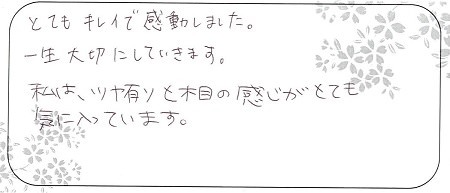 とても キレイで感動しました。
一生大切にしていきます。
私は、ツヤ有りと木目の感じがとても
気に入っています。